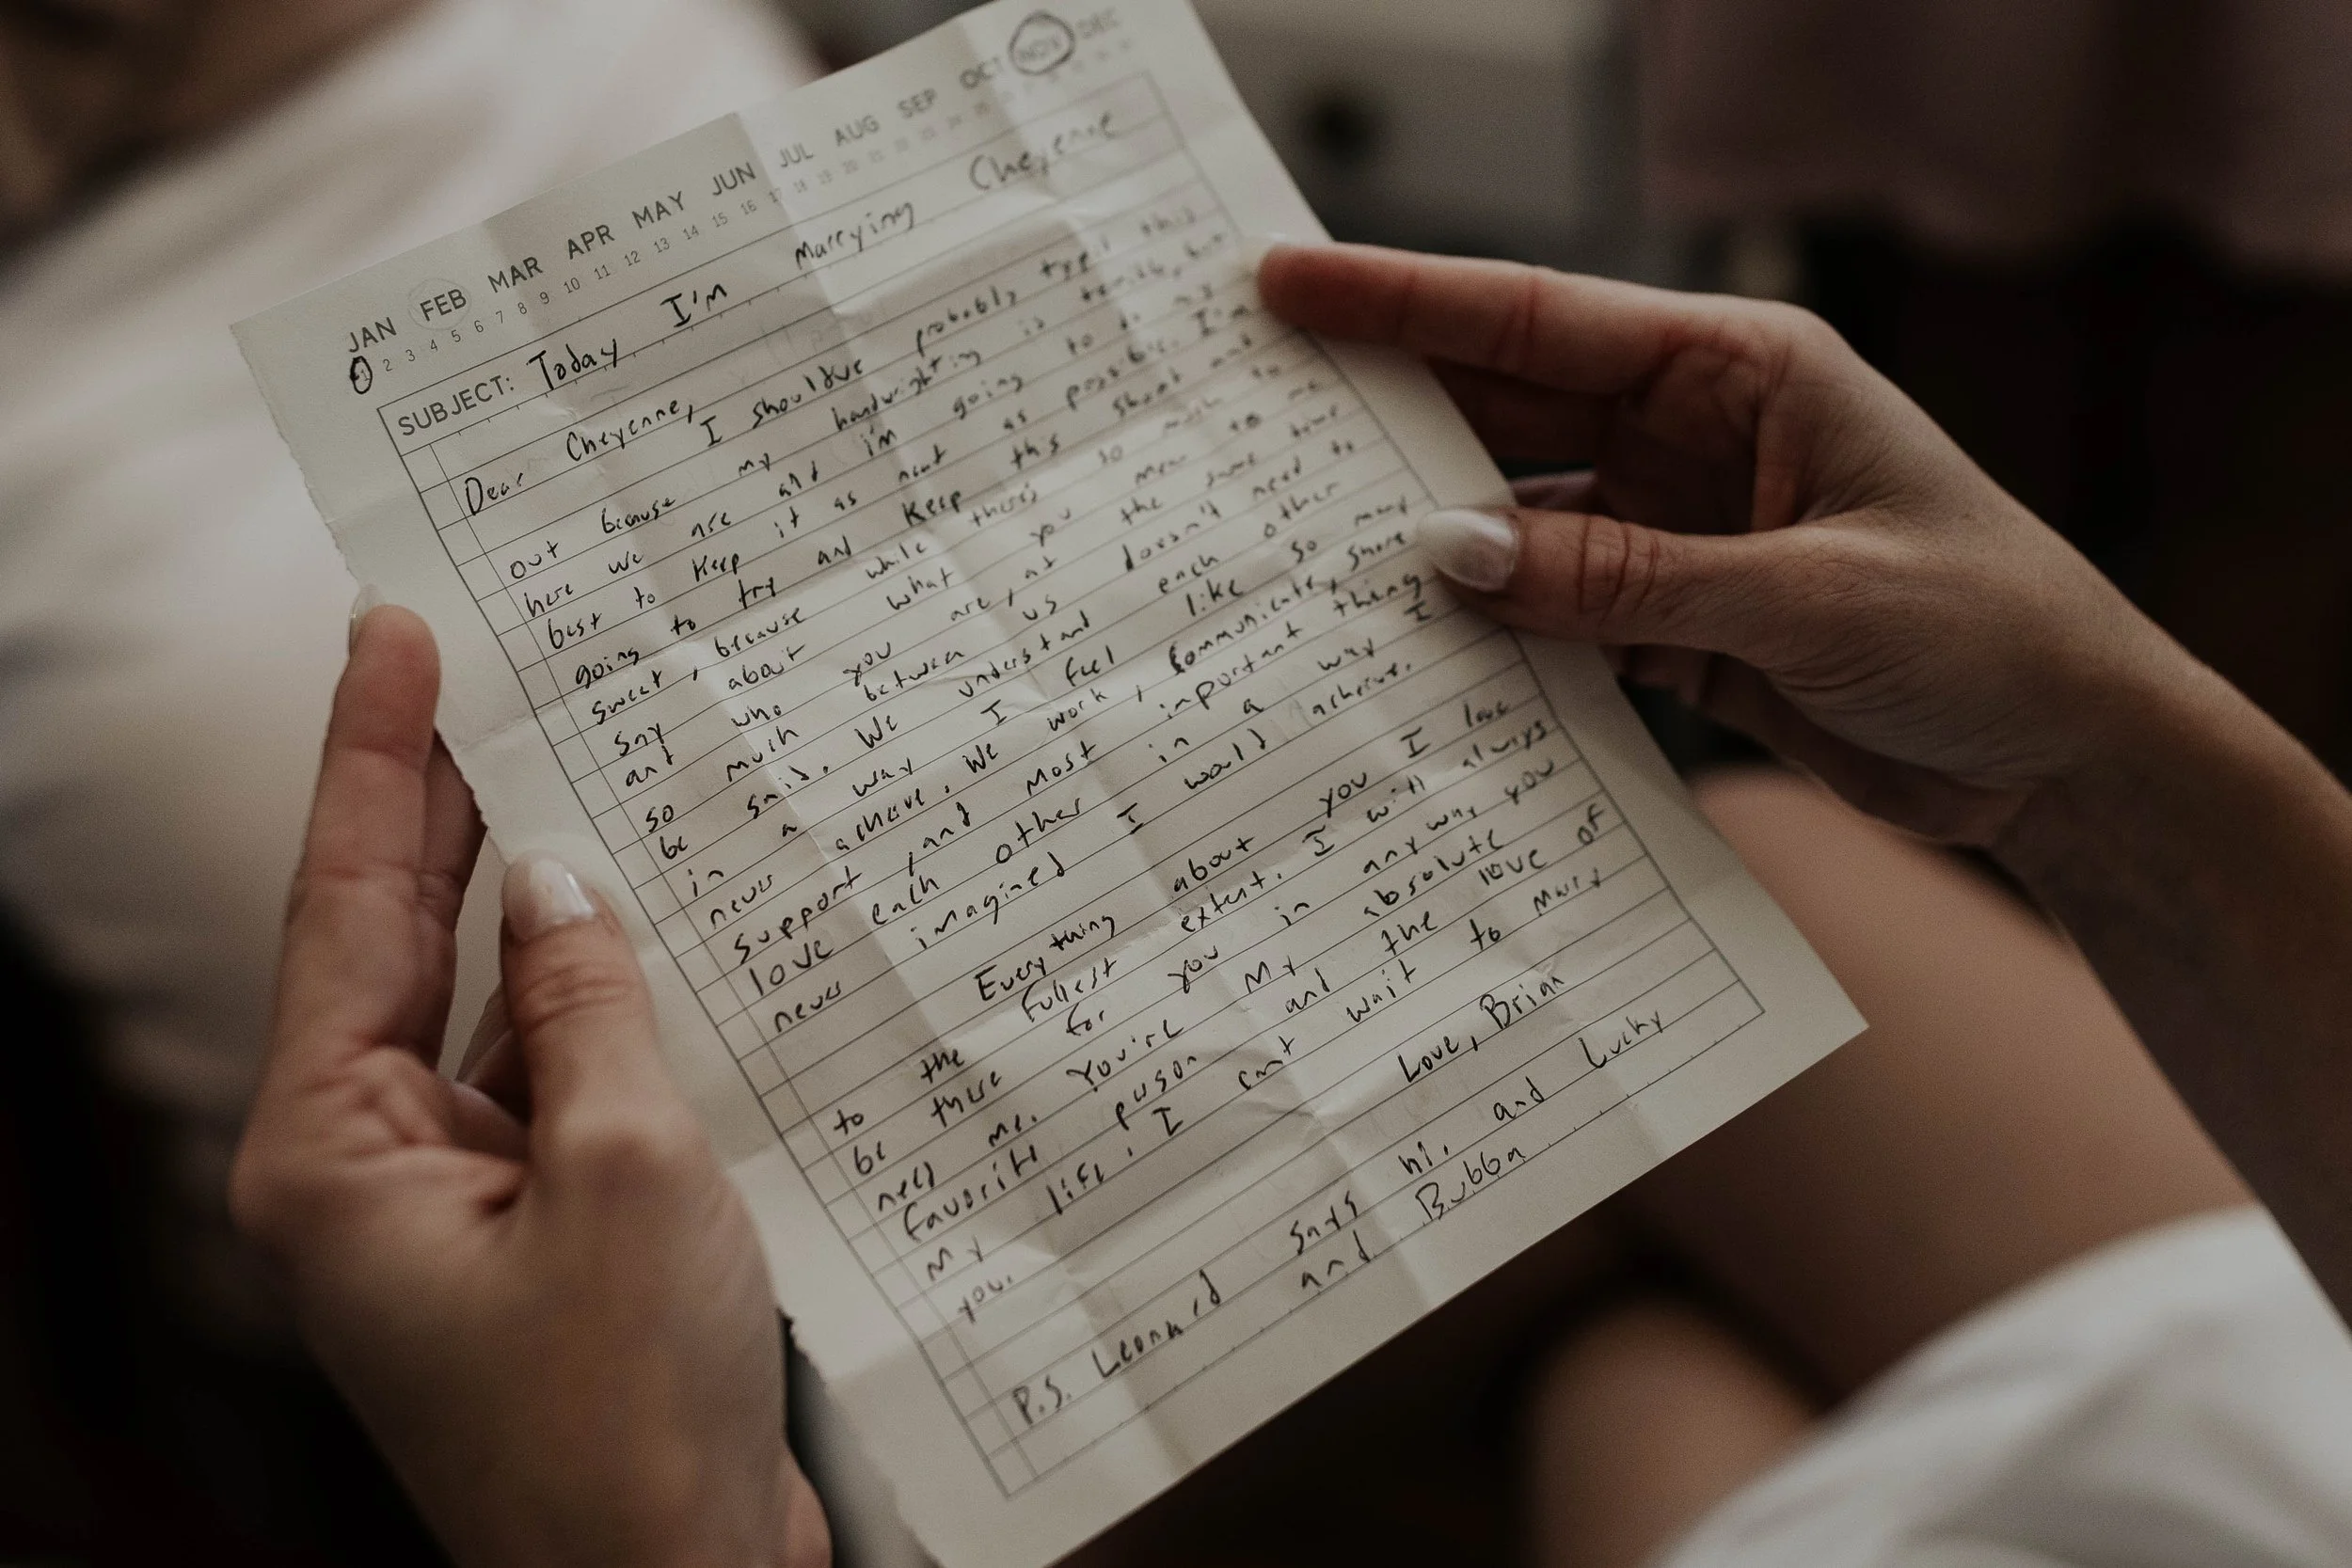 JAN FEB MAR APR MAY JUN JUL AUG SEP OCT NOV DEC
1 2 3 4 5 6 7 8 9 10 11 12 13 14 15 16 17 18 19 20 21 22 23 24 25
SUBJECT: Today I'm Marrying Cheyenne
Dear Cheyenne,
I shouldve probably typed this
out because my handwrighting is terrible, but
here we are and i'm going to do my
best to keep it as neat as possible. I'm
going to try and keep this short and
sweet, because while there's so much to
say about what you mean to me
and who you are, at the same time
so much between us doesn't need to
be said. We understand each other
in a way I feel like so many
never acheive. We work, communicate, share
support, and most important thing
love each other in a way I
never imagined I would acheive.
Everything about you I love
to the fullest extent. I will always
be there for you in any way you
need me. You're my absolute
favorite person and the love of
my life. I cant wait to marry
you.
Love, Brian
P.S. Leonard says hi. and Lucky
and Bubba